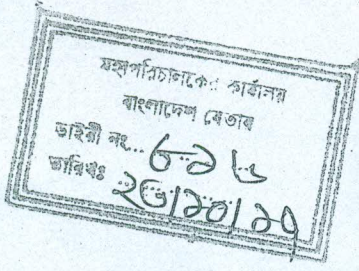 মহাপরিচালকের কার্যালয়
বাংলাদেশ বেতার
ডাইরী নং... ৩৯৬
তারিখঃ ২৩/১০/১৭